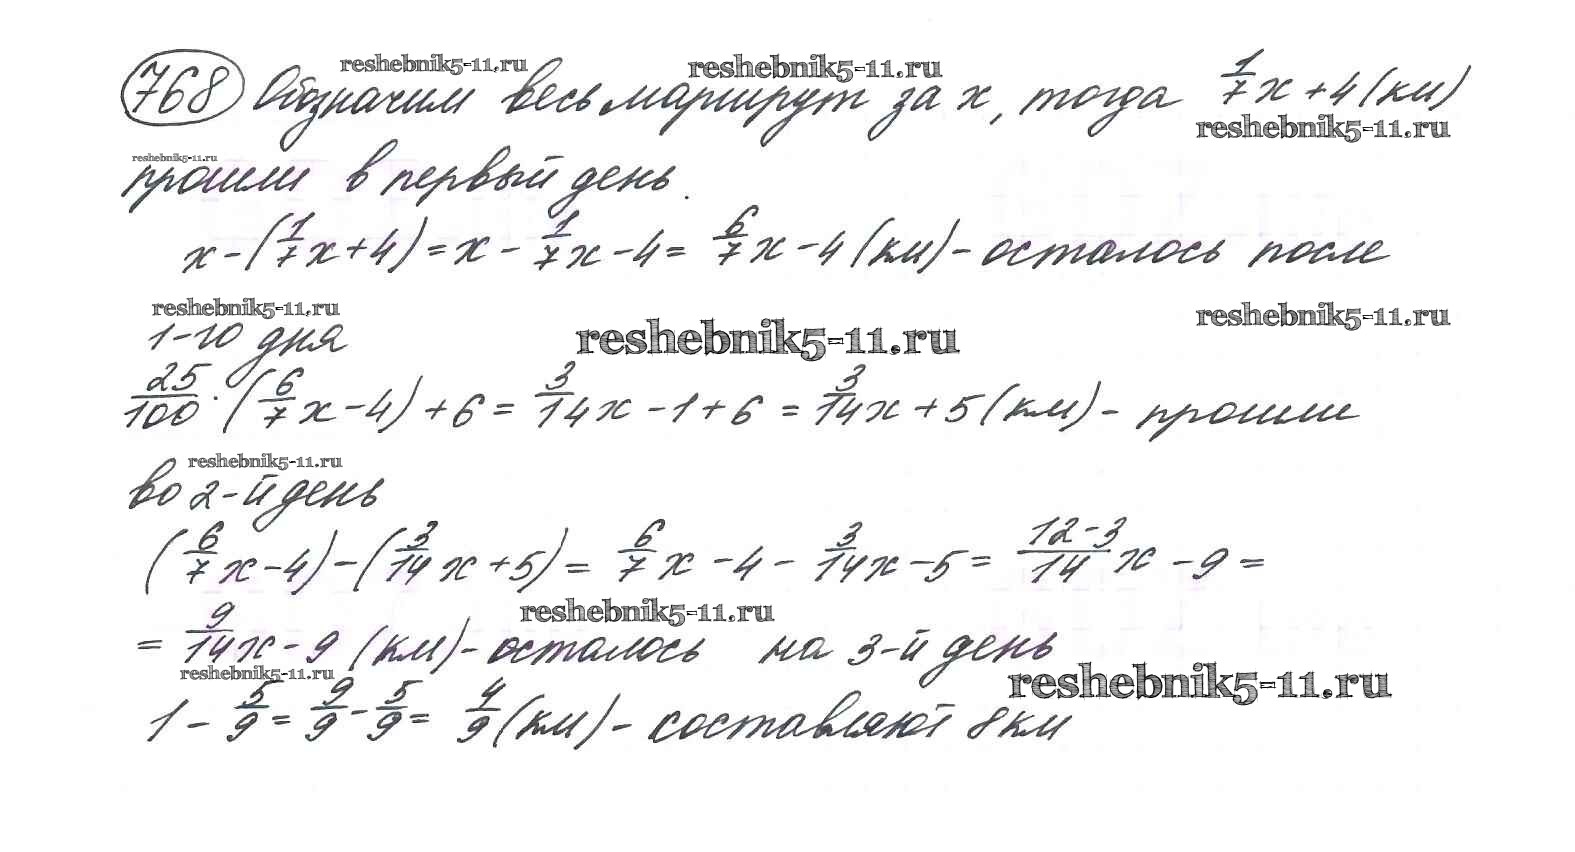 768 Обозначим весь маршрут за x, тогда 1/7 x + 4 (км)
прошли в первый день.
x - (1/7 x + 4) = x - 1/7 x - 4 = 6/7 x - 4 (км) - осталось после
1-го дня
25/100 · (6/7 x - 4) + 6 = 3/14 x - 1 + 6 = 3/14 x + 5 (км) - прошли
во 2-й день
(6/7 x - 4) - (3/14 x + 5) = 6/7 x - 4 - 3/14 x - 5 = 12-3/14 x - 9 =
= 9/14 x - 9 (км) - осталось на 3-й день
1 - 5/9 = 9/9 - 5/9 = 4/9 (км) - составляют 8 км
reshebnik5-11.ru
reshebnik5-11.ru
reshebnik5-11.ru
reshebnik5-11.ru
reshebnik5-11.ru
reshebnik5-11.ru
reshebnik5-11.ru
reshebnik5-11.ru
reshebnik5-11.ru
reshebnik5-11.ru
reshebnik5-11.ru